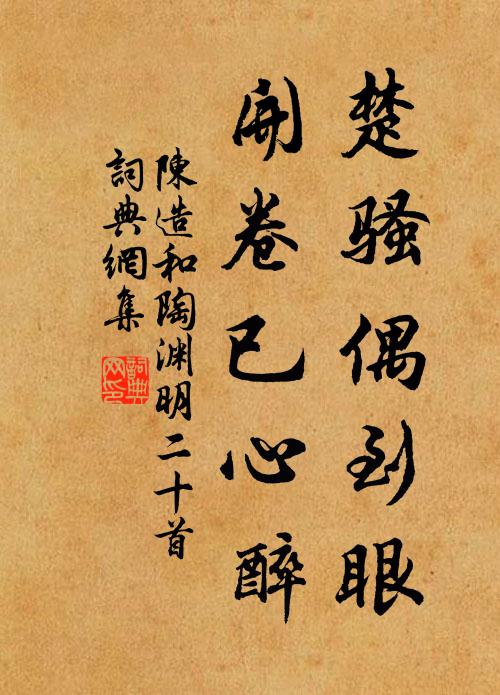 楚騷偶到眼
開卷已心醉
陳造和陶淵明二十首
詞典網集
詞典网印